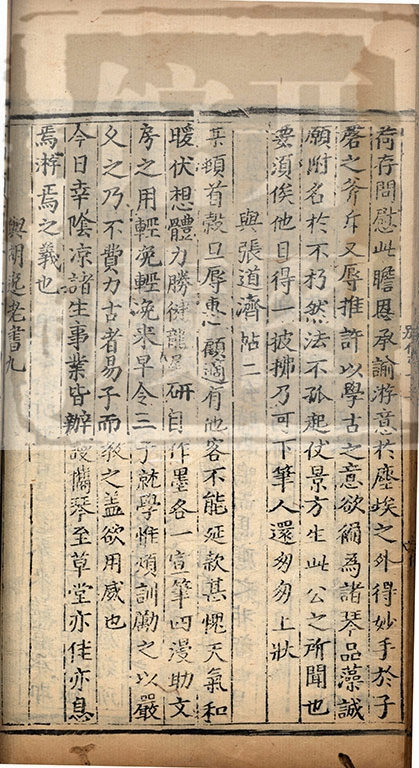 荷存問慰此瞻恩承諭游意於塵埃之外得妙手於子
磬之斧斤又辱推許以學古之意欲爾為諸琴品藻誠
願附名於不朽然法不孤起仗景方生此公之所聞也
要須俟他日得一披拂乃可下筆人還匆匆上狀
與張道濟帖二
某頓首穀旦辱惠顧適有他客不能延款甚愧天氣和
暖伏想體力勝健龍尾研自作墨各一宣筆四漫助文
房之用輕浼輕浼來早令三子就學惟煩訓勵之以嚴
久之乃不費力古者易子而教之蓋欲用威也
今日幸陰涼諸生事業皆辦護攜琴至草堂亦佳亦息
焉游焉之義也
與胡逸老書九